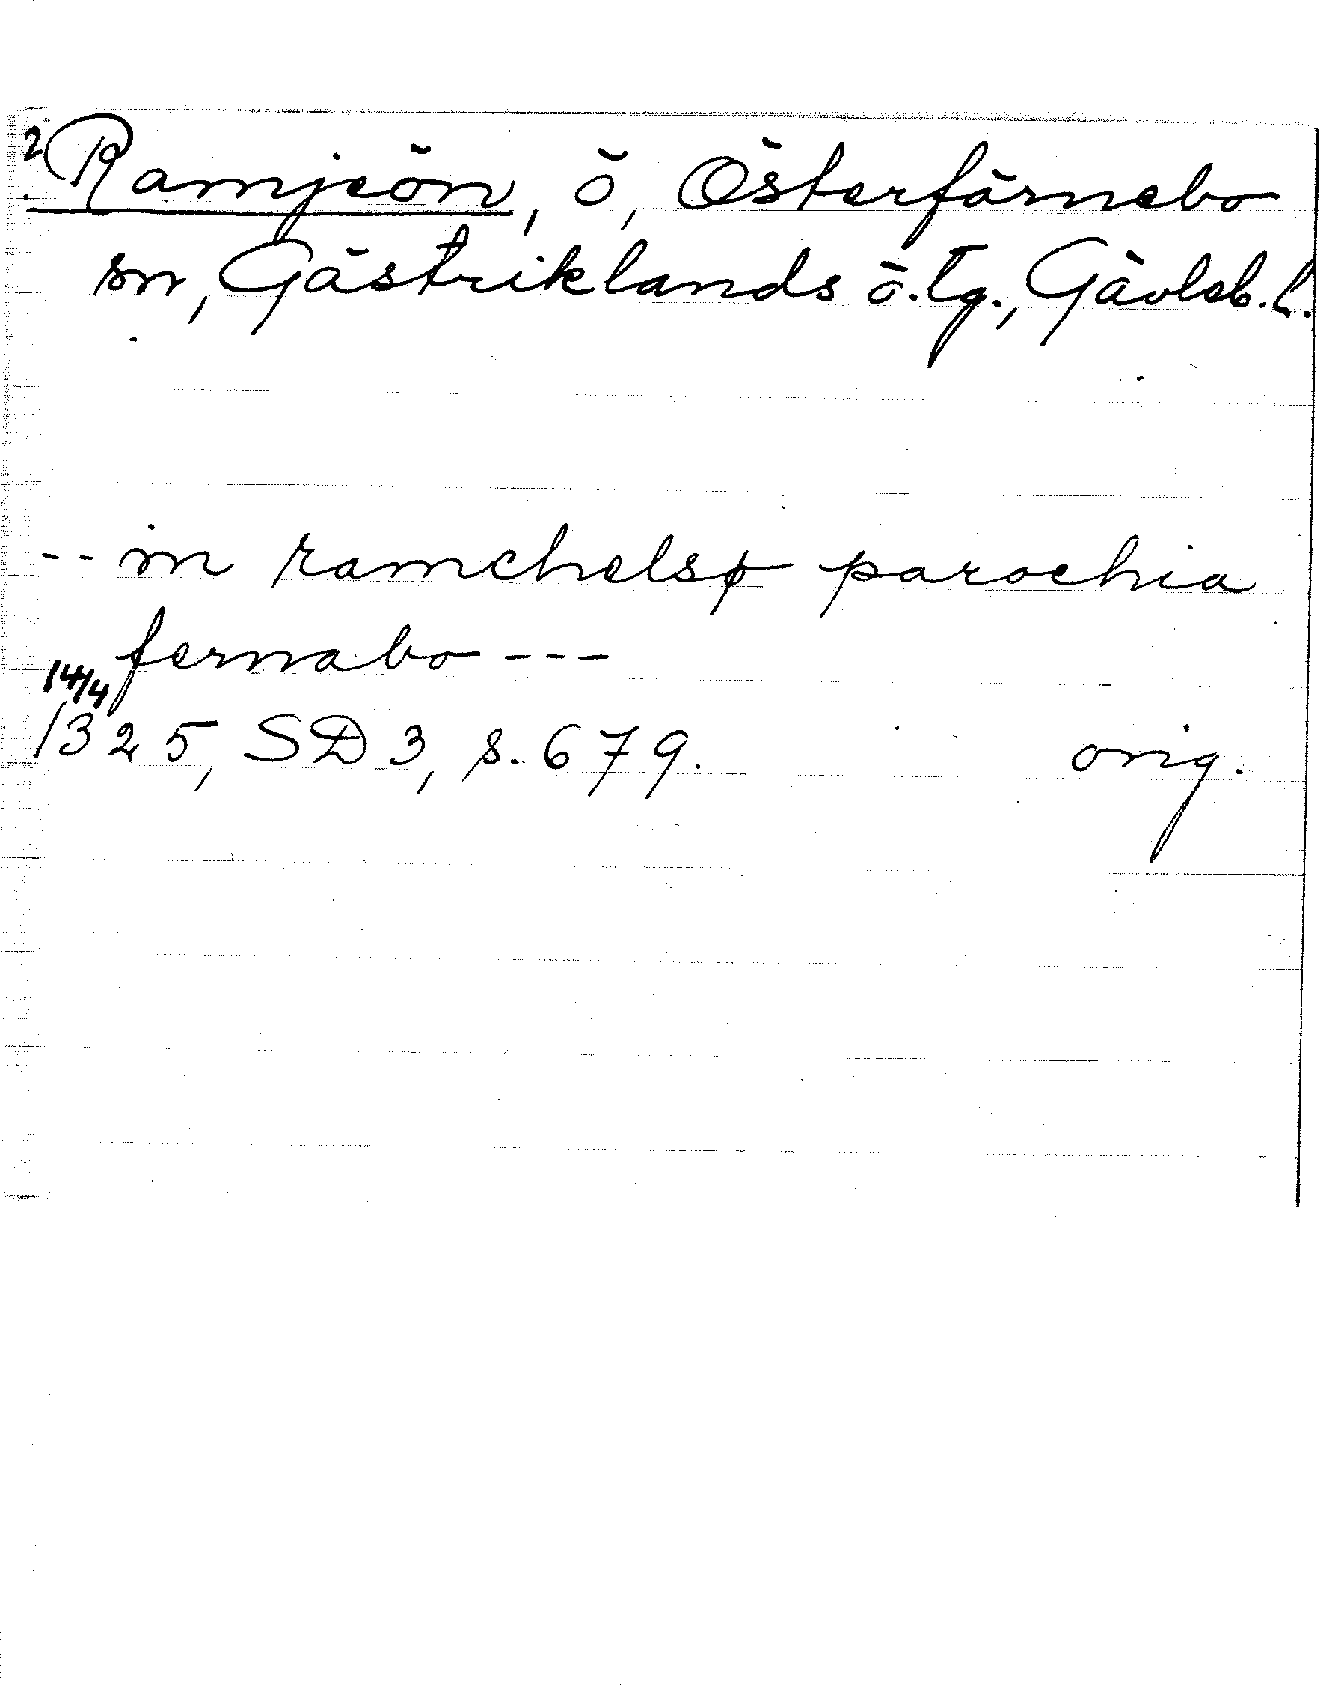 2 Ramjeön, ö, Österfärnebo
sn, Gästriklands ö. tg., Gävleb. l.
-- in ramchelsø parochia
fernabo ---
14/4
1325, SD 3, s. 679. orig.